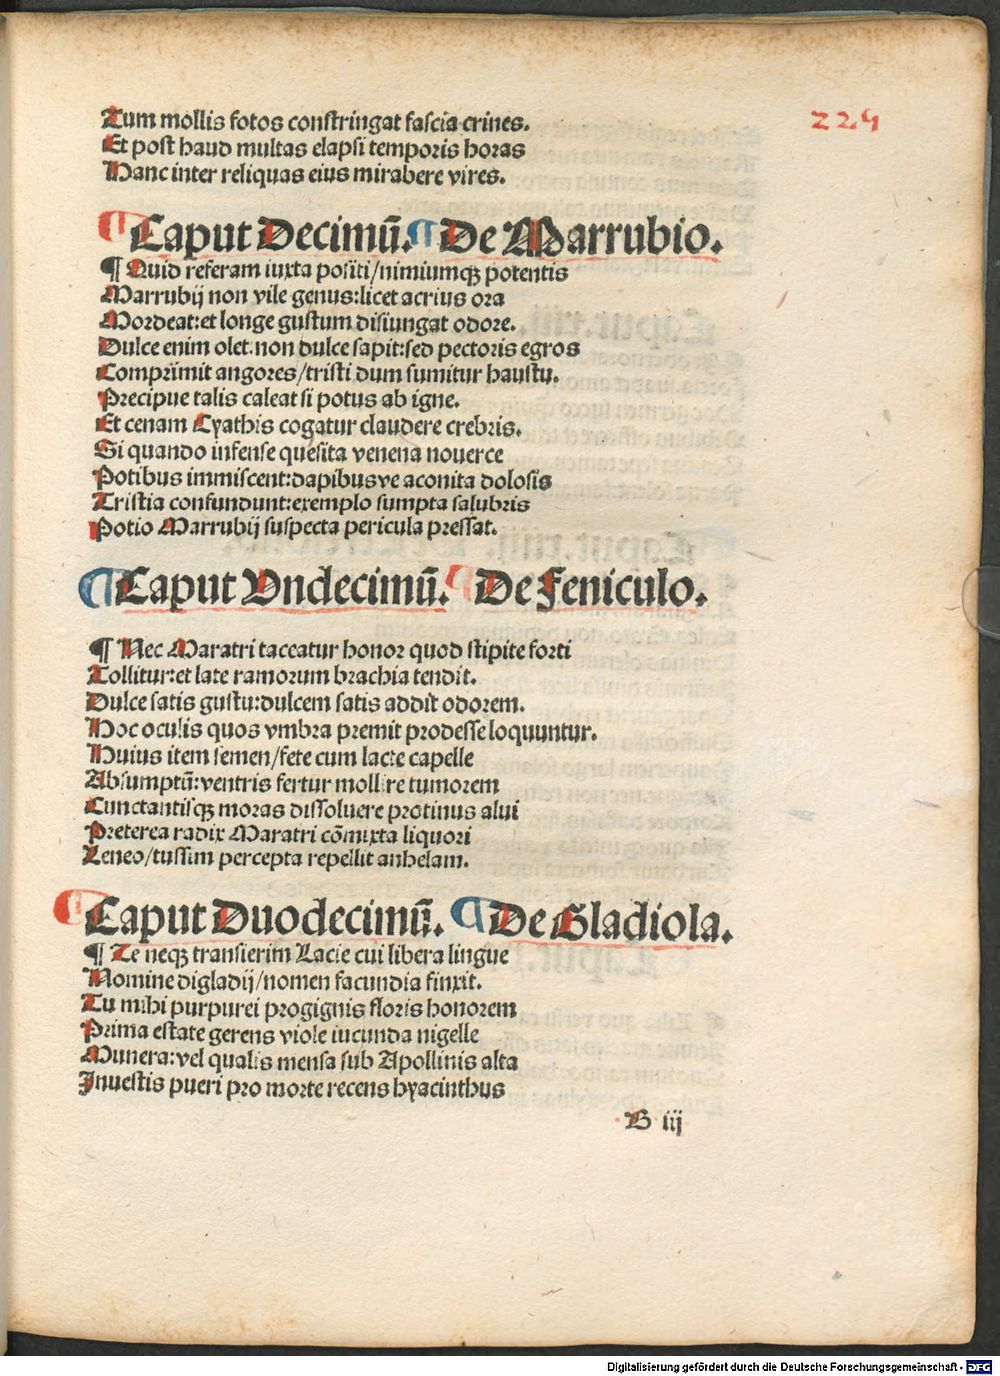 Tum mollis fotos constringat fascia crines.
224
Et post haud multas elapsi temporis horas
Hanc inter reliquas eius mirabere vires.
¶ Caput Decimū. ¶ De Marrubio.
¶ Quid referam iuxta positi/nimiumqꝫ potentis
Marrubij non vile genus:licet acrius ora
Mordeat:et longe gustum disiungat odore.
Dulce enim olet:non dulce sapit:sed pectoris egros
Comprimit angores/tristi dum sumitur haustu.
Precipue talis caleat si potus ab igne.
Et cenam Cyathis cogatur claudere crebris.
Si quando infense quesita venena nouerce
Potibus immiscent:dapibusve aconita dolosis
Tristia confundunt:exemplo sumpta salubris
Potio Marrubij suspecta pericula pressat.
¶ Caput Vndecimū. ¶ De Feniculo.
¶ Nec Maratri taceatur honor quod stipite forti
Tollitur:et late ramorum brachia tendit.
Dulce satis gustu:dulcem satis addit odorem.
Hoc oculis quos vmbra premit prodesse loquuntur.
Huius item semen/fete cum lacte capelle
Absumptū:ventris fertur mollire tumorem
Cunctantisqꝫ moras dissoluere protinus alui
Preterea radix Maratri cōmixta liquori
Leneo/tussim percepta repellit anhelam.
¶ Caput Duodecimū. ¶ De Gladiola.
¶ Te neqꝫ transierim Lacie cui libera lingue
Nomine digladij/nomen facundia finxit.
Tu mihi purpurei progignis floris honorem
Prima estate gerens viole iucunda nigelle
Munera:vel qualis mensa sub Apollinis alta
Inuestis pueri pro morte recens hyacinthus
B iij
Digitalisierung gefördert durch die Deutsche Forschungsgemeinschaft - DFG